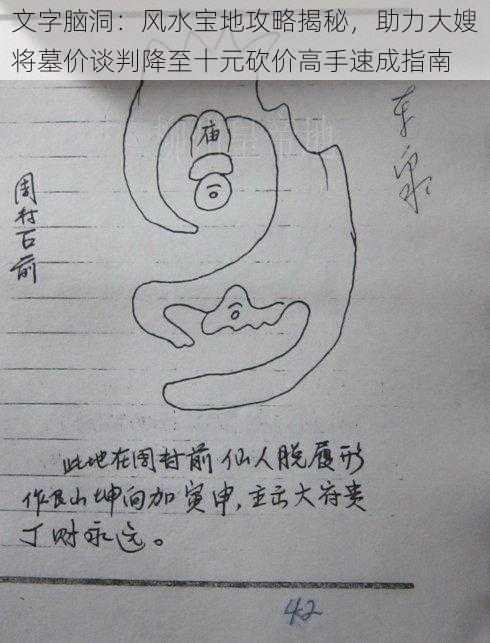 文字脑洞：风水宝地攻略揭秘，助力大嫂
将墓价谈判降至十元砍价高手速成指南
庙
周村石前
此地在周村前仙人脱履形
作艮山坤向加寅申，主出大富贵
丁财永远。
42